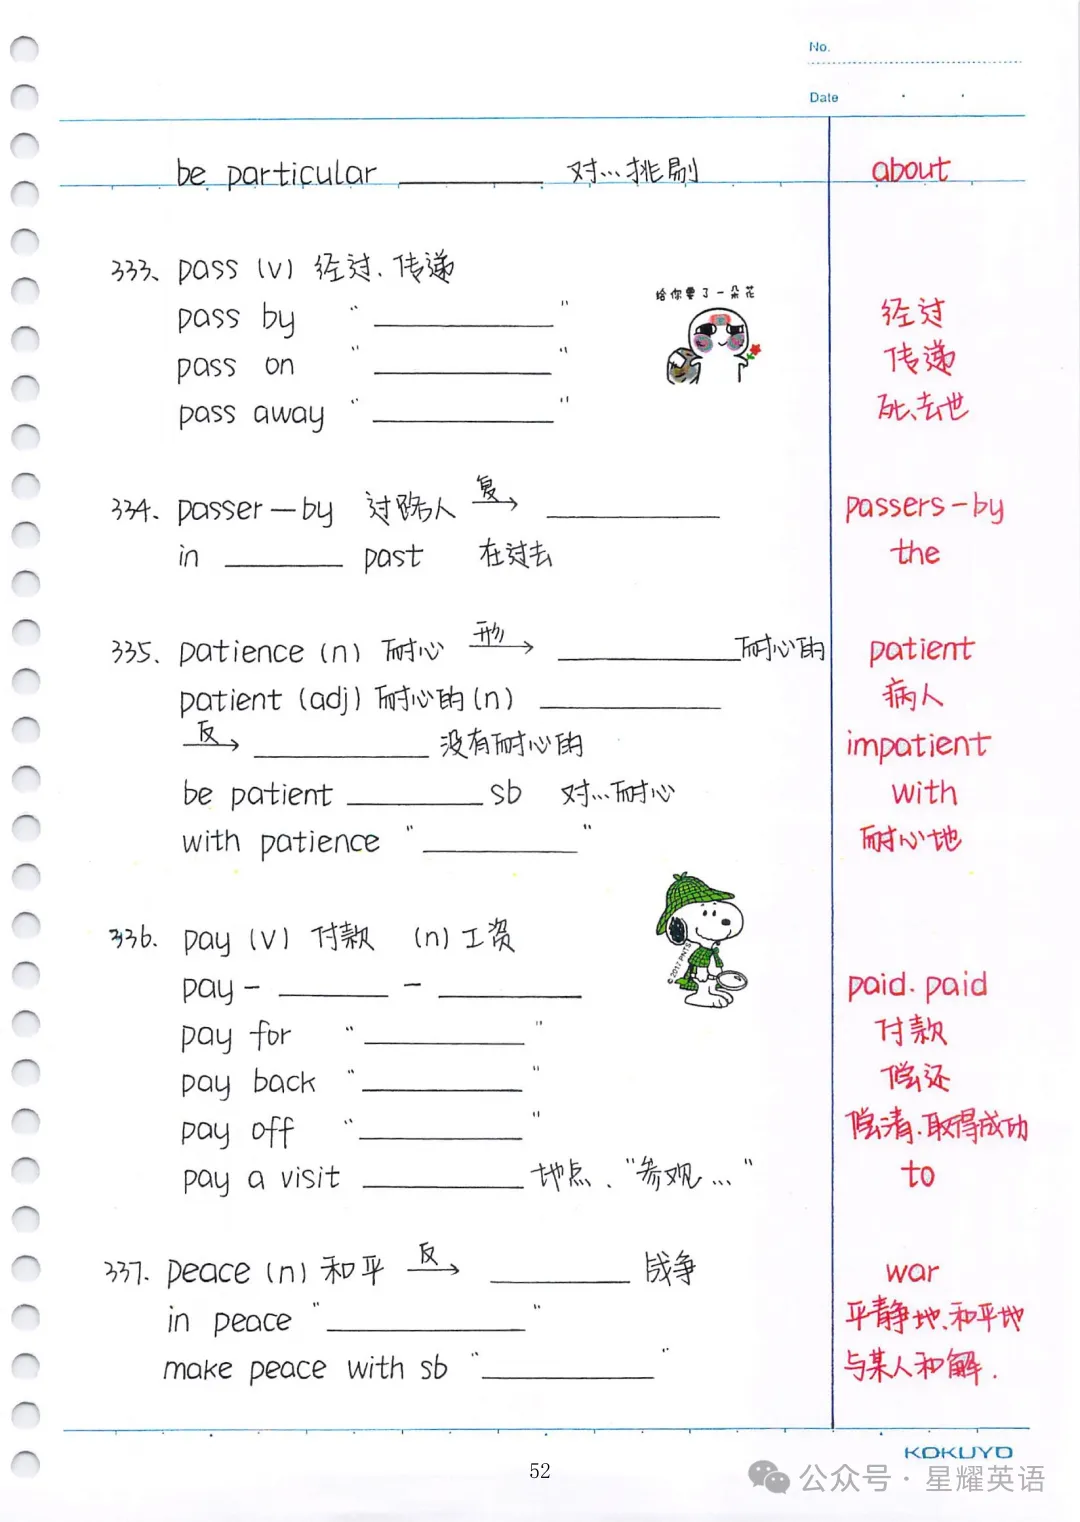 No.
Date
be particular ________ 对…挑剔 about
333、pass (v) 经过、传递
给你要了一朵花
pass by “ ________ ” 经过
pass on “ ________ ” 传递
pass away “ ________ ” 死、去世
334、passer—by 过路人 复→ ________ passers-by
in ________ past 在过去 the
335、patience (n) 耐心 形→ ________ 耐心的 patient
patient (adj) 耐心的 (n) ________ 病人
反→ ________ 没有耐心的 impatient
be patient ________ sb 对…耐心 with
with patience “ ________ ” 耐心地
336、pay (v) 付款 (n) 工资
©2017 PNTS
pay - ________ - ________ paid、paid
pay for “ ________ ” 付款
pay back “ ________ ” 偿还
pay off “ ________ ” 偿清、取得成功
pay a visit ________ 地点、“参观…” to
337、peace (n) 和平 反→ ________ 战争 war
in peace “ ________ ” 平静地、和平地
make peace with sb “ ________ ” 与某人和解.
KOKUYO
52
公众号·星耀英语